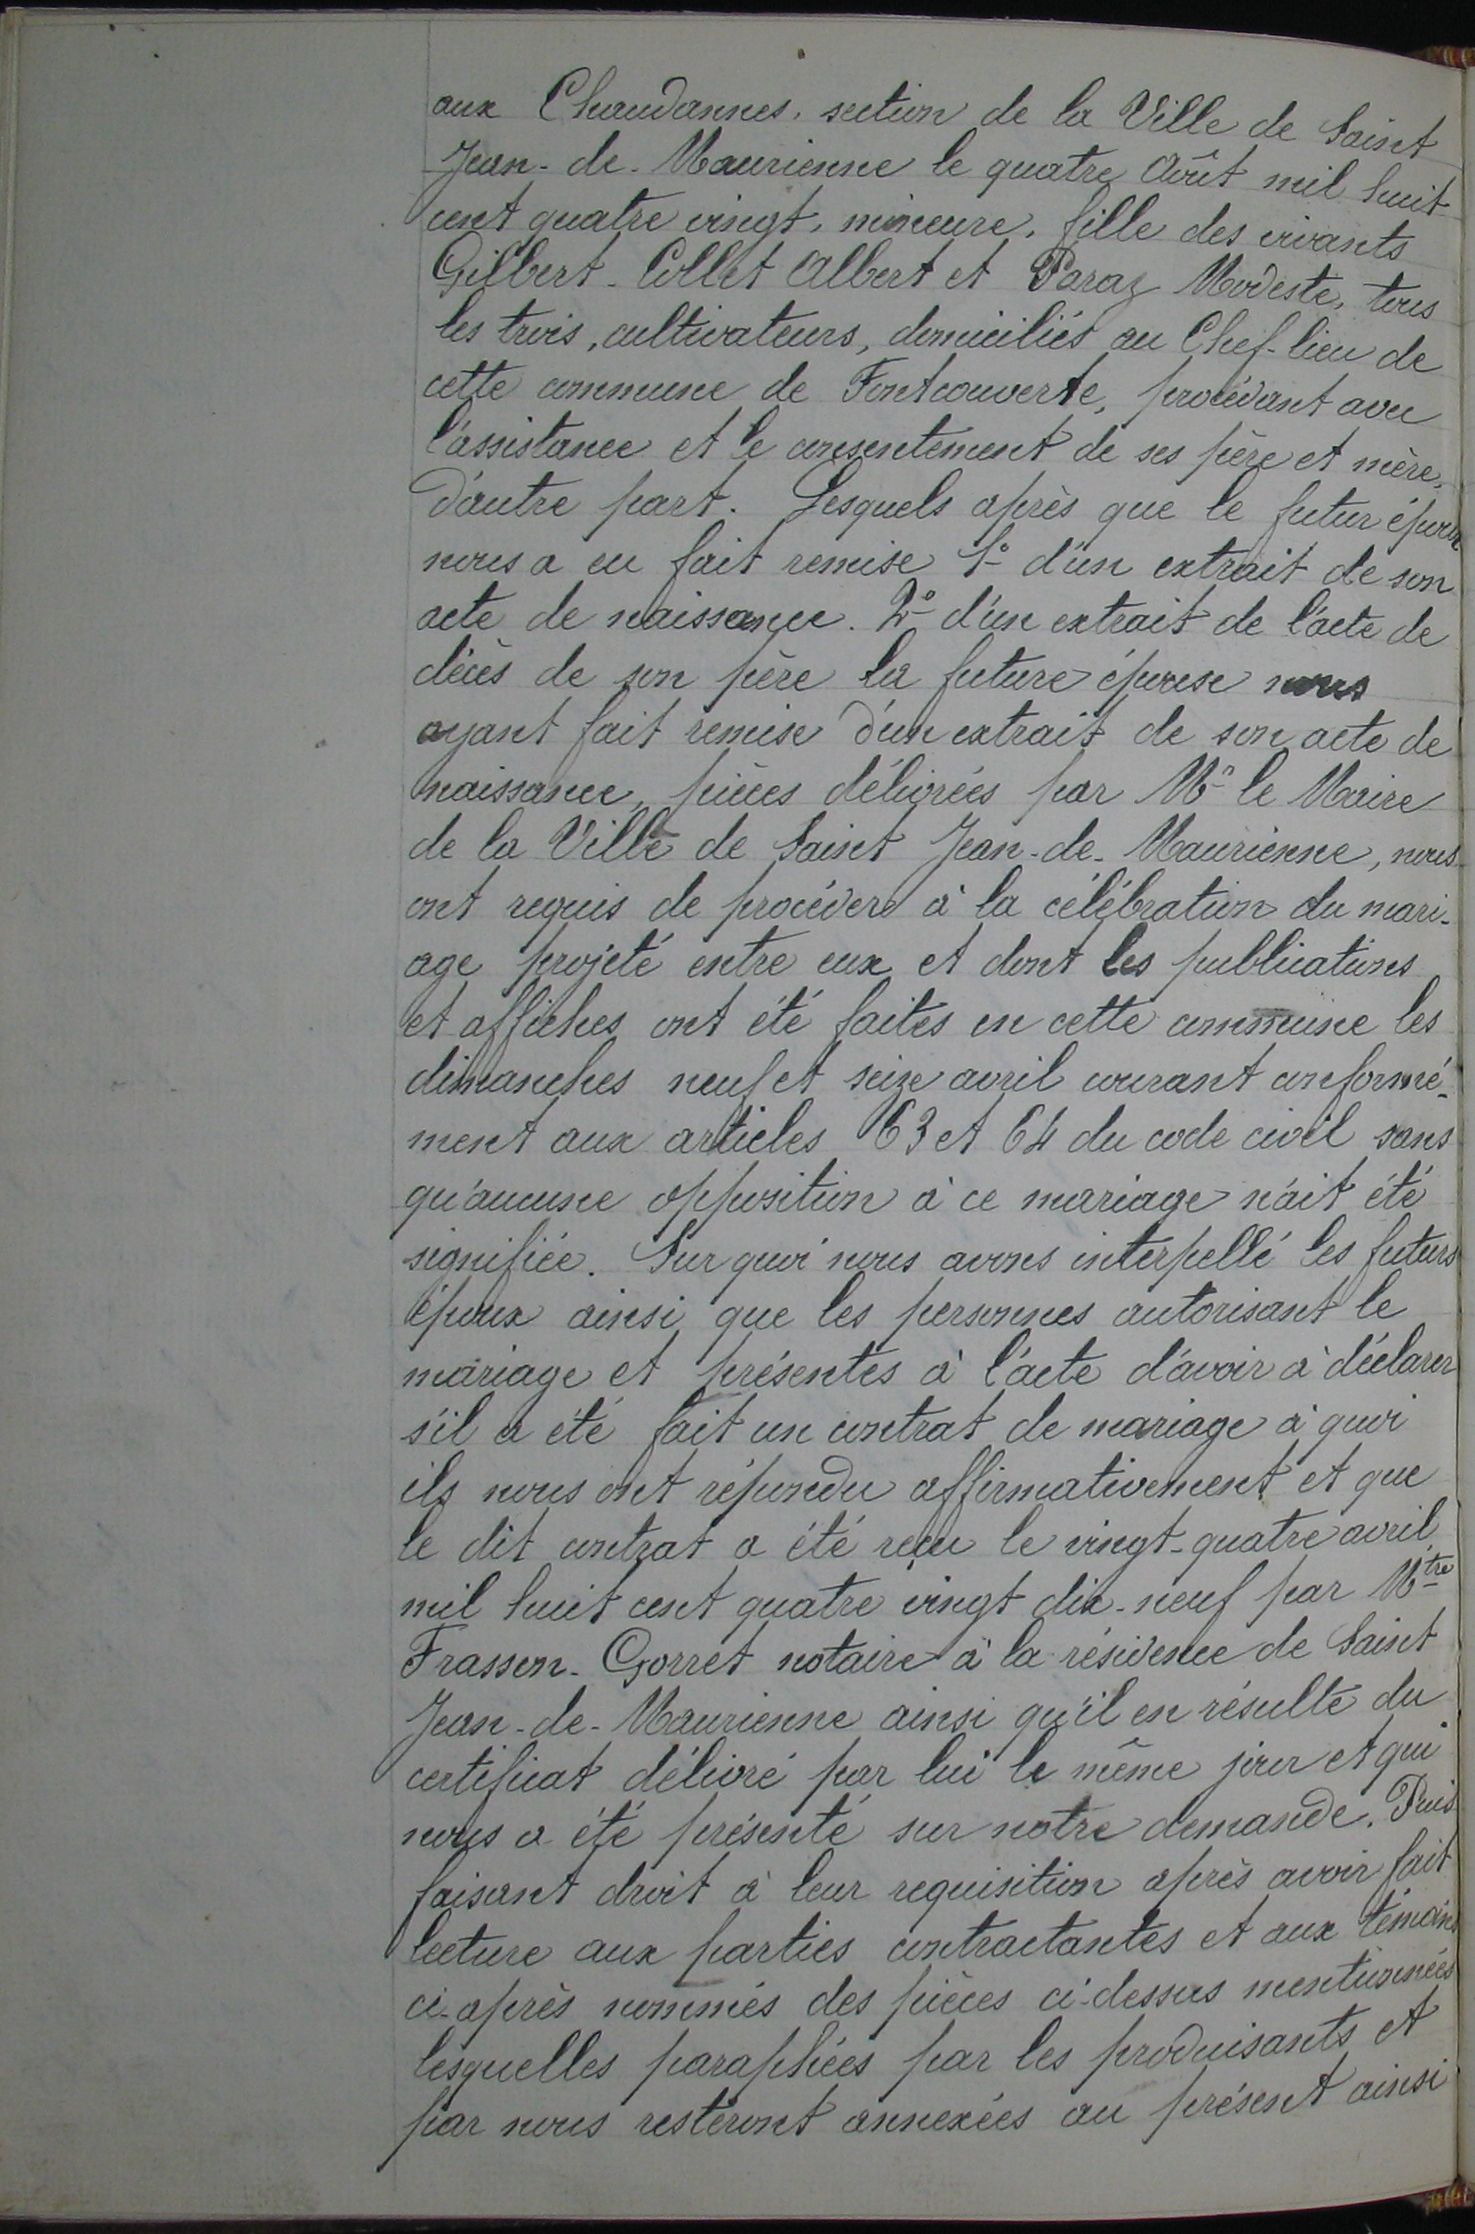 aux Chaudannes, section de la Ville de Saint
Jean-de-Maurienne le quatre Août mil huit
cent quatre vingt, mineure, fille des vivants
Gilbert-Collet Albert et Paraz Modeste, tous
les trois, cultivateurs, domiciliés au Chef-lieu de
cette commune de Fontcouverte, procédant avec
l'assistance et le consentement de ses père et mère,
d'autre part. Lesquels après que le futur époux
nous a eu fait remise 1° d'un extrait de son
acte de naissance. 2° d'un extrait de l'acte de
décès de son père la future épouse nous
ayant fait remise d'un extrait de son acte de
naissance, pièces délivrées par Mr le Maire
de la Ville de Saint Jean-de-Maurienne, nous
ont requis de procéder à la célébration du mari-
age projeté entre eux et dont les publications
et affiches ont été faites en cette commune les
dimanches neuf et seize avril courant conformé-
ment aux articles 63 et 64 du code civil sans
qu'aucune opposition à ce mariage n'ait été
signifiée. Sur quoi nous avons interpellé les futurs
époux ainsi que les personnes autorisant le
mariage et présentes à l'acte d'avoir à déclarer
s'il a été fait un contrat de mariage à quoi
ils nous ont répondu affirmativement et que
le dit contrat a été reçu le vingt-quatre avril
mil huit cent quatre vingt dix-neuf par Mtre
Frasson-Gorret notaire à la résidence de Saint
Jean-de-Maurienne ainsi qu'il en résulte du
certificat délivré par lui le même jour et qui
nous a été présenté sur notre demande. Puis
faisant droit à leur requisition après avoir fait
lecture aux parties contractantes et aux témoins
ci-après nommés des pièces ci-dessus mentionnées
lesquelles paraphées par les produisants et
par nous resteront annexées au présent ainsi